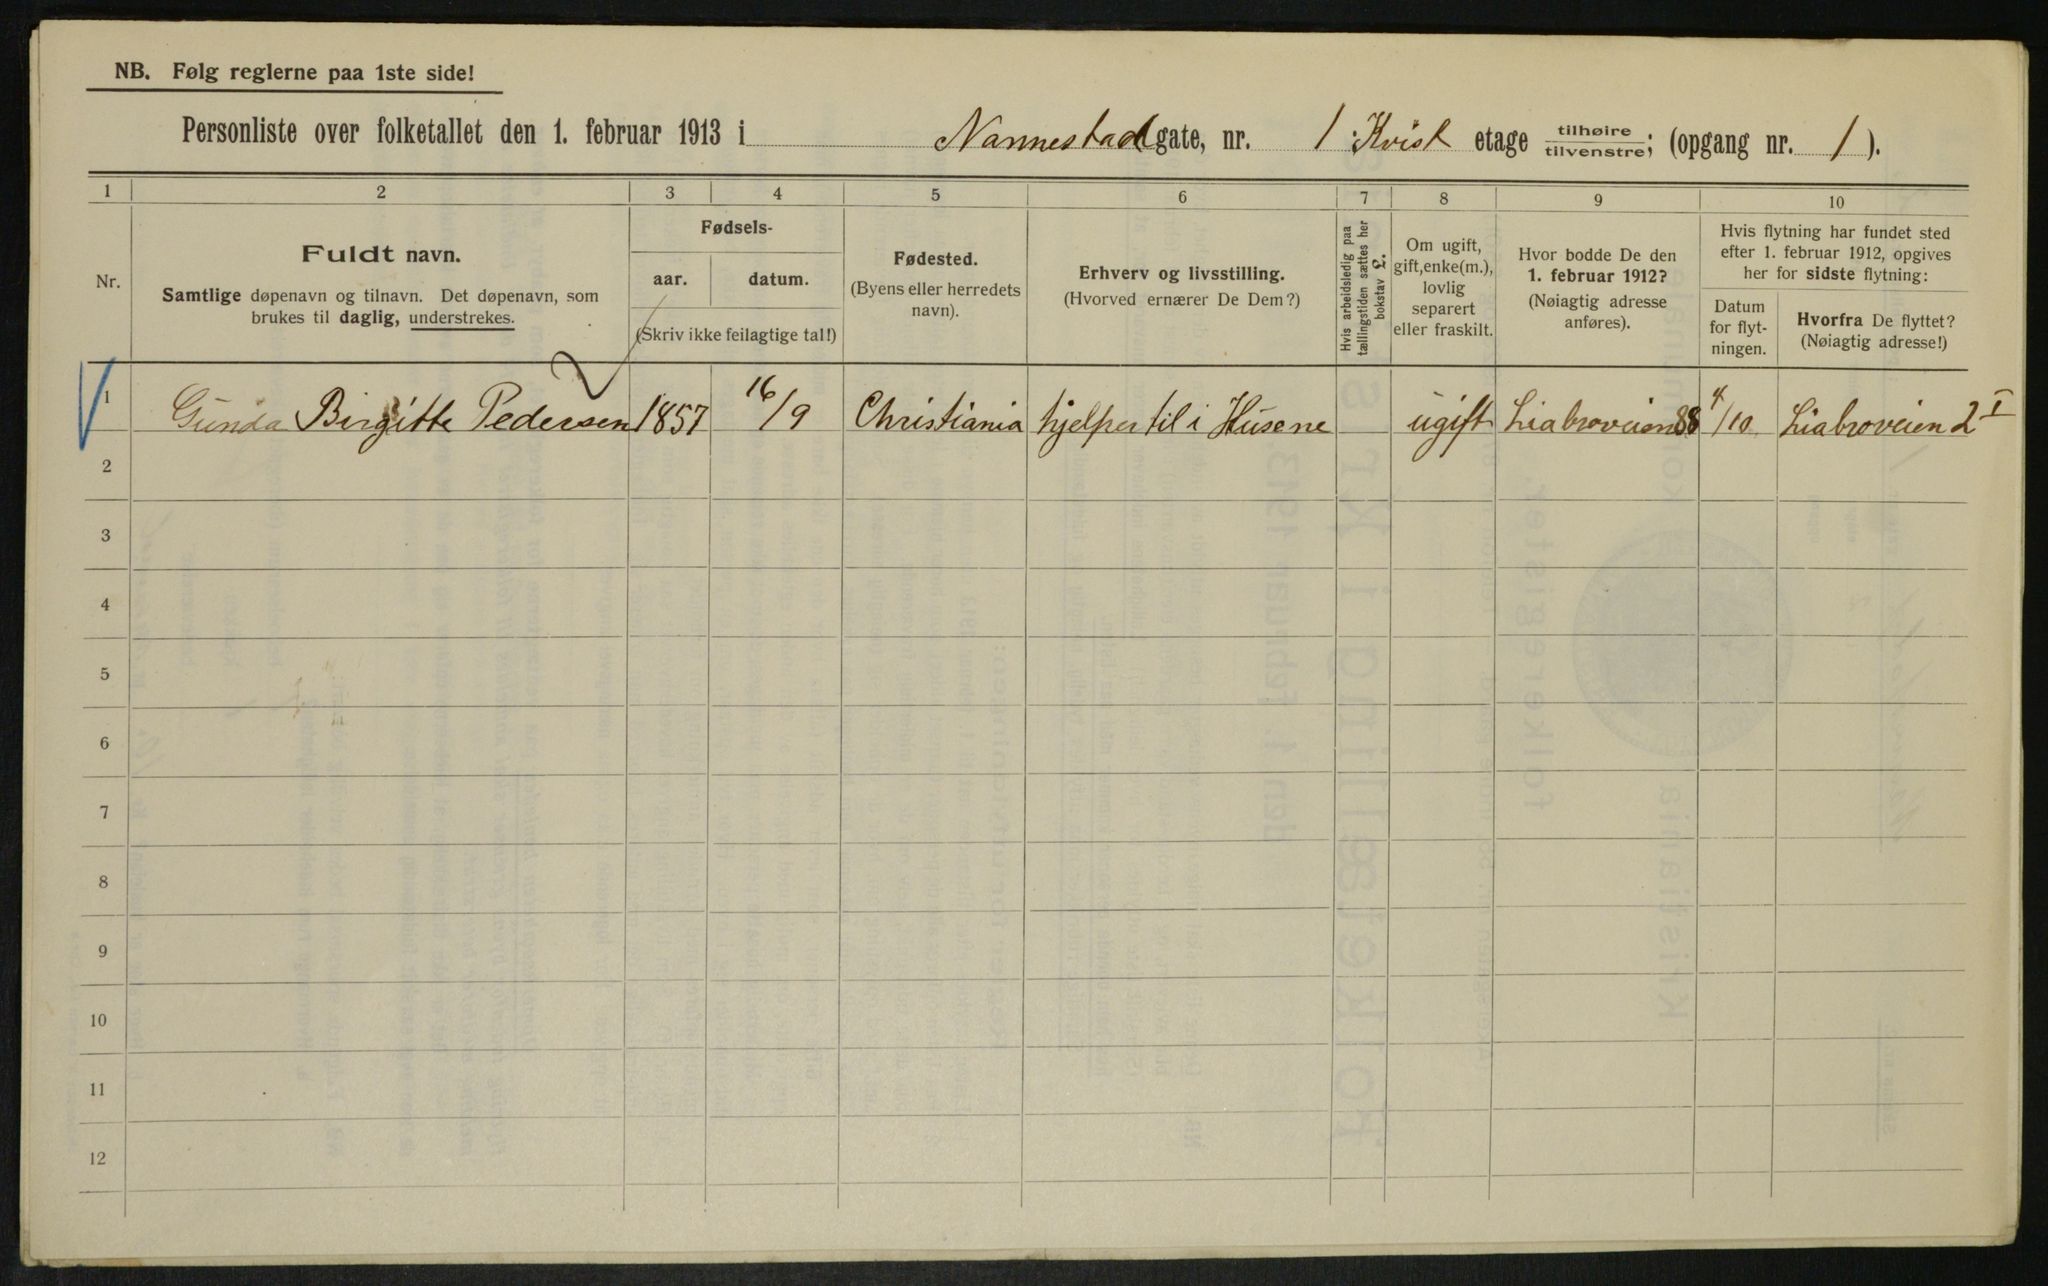 NB. Følg reglerne paa 1ste side!
Personliste over folketallet den 1. februar 1913 i Nannestadgate, nr. 1 Kvist etage tilhøire/tilvenstre; (opgang nr. 1).
1 2 3 4 5 6 7 8 9 10
Nr.
Fuldt navn.
Samtlige døpenavn og tilnavn. Det døpenavn, som
brukes til daglig, understrekes.
Fødsels-
aar. datum.
(Skriv ikke feilagtige tal!)
Fødested.
(Byens eller herredets
navn).
Erhverv og livsstilling.
(Hvorved ernærer De Dem?)
Hvis arbeidsledig paa
tællingstiden sættes her
bokstav L.
Om ugift,
gift, enke(m.),
lovlig
separert
eller fraskilt.
Hvor bodde De den
1. februar 1912?
(Nøiagtig adresse
anføres).
Hvis flytning har fundet sted
efter 1. februar 1912, opgives
her for sidste flytning:
Datum
for flyt-
ningen.
Hvorfra De flyttet?
(Nøiagtig adresse!)
1 Gunda Birgitte Pedersen 1857 16/9 Christiania hjelper til i Husene ugift Liabroveien 88 4/10 Liabroveien 2 I
2
3
4
5
6
7
8
9
10
11
12